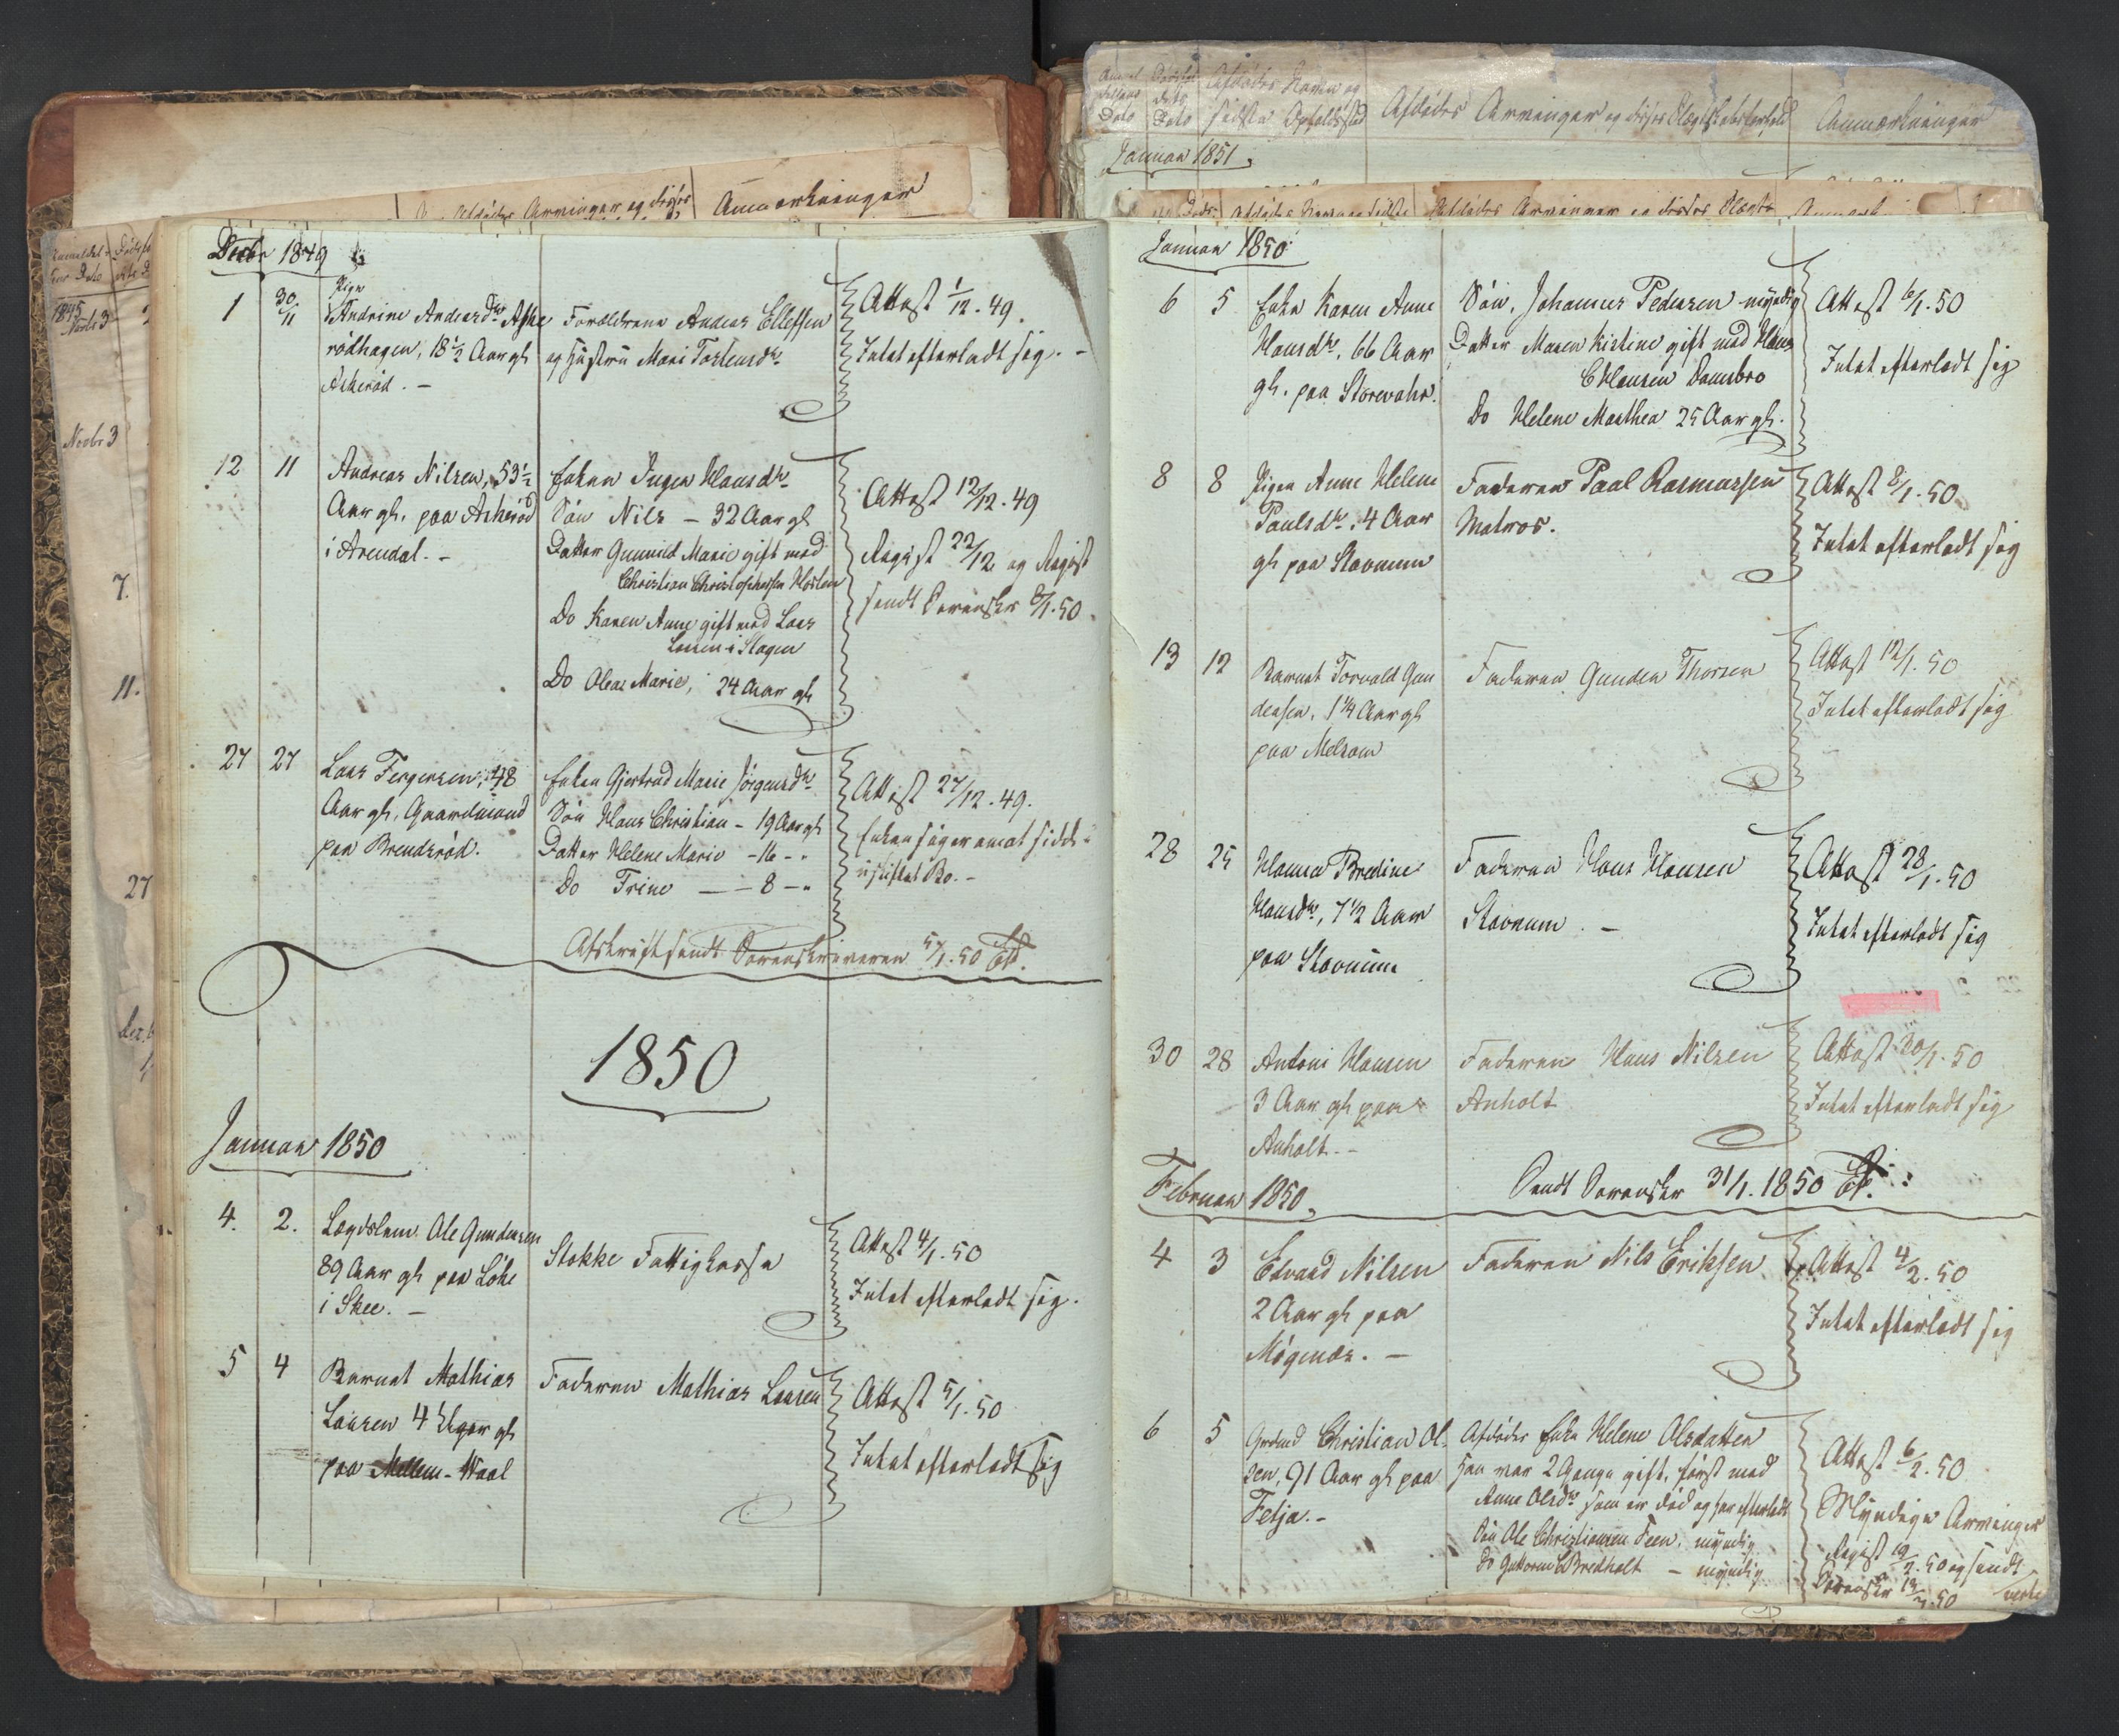 Afdødes Arvinger og disses
Anmærkninger
1845
Novbr 3
7.
11.
27
Decbr 1849
1
30/11
Pigen
Andrine Andreasdtr Aske
rødhagen, 18½ Aar gl
Askerød. –
Forældrene Andreas Ellefsen
og Hustru Mari Torstensdtr
Attest 1/12. 49.
Intet efterladt sig. –
12
11
Andreas Nilsen, 53½
Aar gl. paa Askerød
i Arendal. –
Enken Inger Hansdtr
Søn Nils – 32 Aar gl
Datter Gunnild Marie gift med
Christian Christophersen
Do Karen Anne gift med Lars
Larsen i Slagen
Do Olea Marie, 24 Aar gl
Attest 12/12. 49
Regist 22/12 og Regist
sendt Sorenskr 8/1. 50.
27
27
Lars Jørgensen, 48
Aar gl, Gaardmand
paa Brendsrød.
Enken Gjertrud Marie Jørgensdtr
Søn Hans Christian – 19 Aar gl
Datter Helene Marie – 16 – "
Do Trine – – 8 – "
Attest 27/12. 49.
Enken siger om at sidde i
uskiftet Bo. –
Afskrift sendt Sorenskriveren 5/1. 50
1850
Januar 1850
4.
2.
Lægdslem Ole Gundersen
89 Aar gl paa Løke
i Skee. –
Stokke Fattigkasse
Attest 4/1. 50
Intet efterladt sig.
5
4
Barnet Mathias
Larsen 4 Uger gl
paa Mellem-Waal
Faderen Mathias Larsen
Attest 5/1. 50
Intet efterladt sig
Afdødes Navn og
sidste Opholdsted
Afdødes Arvinger og disses Slægtskabsforhold
Anmærkninger
Januar 1851
Januar 1850
6
5
Enke Karen Anne
Hansdtr, 66 Aar
gl. paa Storevahr.
Søn, Johannes Pedersen myndig
Datter Maren Kistine gift med Hans
C Hansen Dannebro
Do Helene Marthea 25 Aar gl.
Attest 6/1. 50
Intet efterladt sig
8
8
Pigen Anne Helene
Paulsdtr, 4 Aar
gl paa Stavnum
Faderen Paal Rasmussen
Matros.
Attest 8/1. 50
Intet efterladt sig
13
12
Barnet Torvald Gun
dersen, 1¼ Aar gl
paa Melsom
Faderen Gunder Thorsen
Attest 12/1. 50
Intet efterladt sig
28
25
Hanna Bredine
Hansdtr, 7½ Aar
paa Stavnum
Faderen Hans Hansen
Stavnum. –
Attest 28/1. 50
Intet efterladt sig
30
28
Antoni Hansen
3 Aar gl paa
Anholt. –
Faderen Hans Nilsen
Anholt
Attest 30/1. 50
Intet efterladt sig
Februar 1850.
Sendt Sorenskr 31/1. 1850
4
3
Edvard Nilsen
2 Aar gl paa
Møgenæs. –
Faderen Nils Eriksen
Attest 4/2. 50
Intet efterladt sig
6
5
Grdmd Christian Ol-
sen, 91 Aar gl paa
Fetja. –
Afdødes Enke Helene Olsdatter
Han var 2 Gange gift, først med
Anne Olsdtr som er død og har efterladt
Søn Ole Christiansen Feen, myndig
Do Guttorm C Bredholt – myndig
Attest 6/2. 50
Myndige Arvinger
Regist 19/2. 50 og sendt
Sorenskr